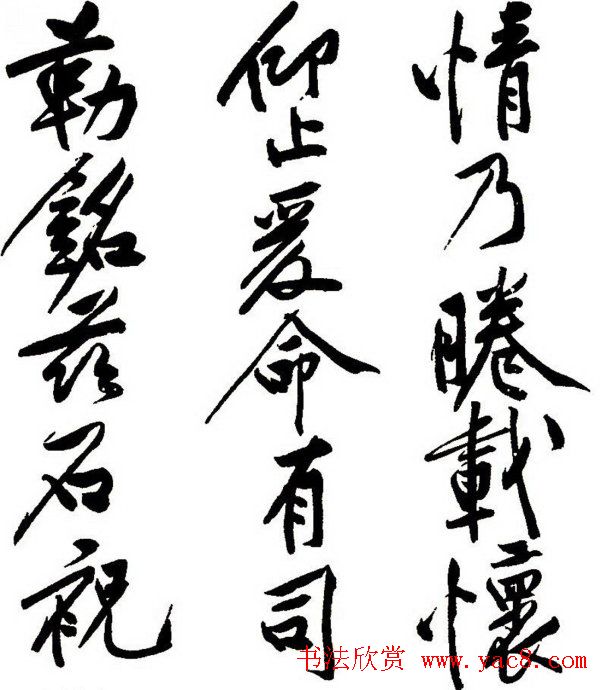 情乃睠載懷
仰止爰命有司
勒銘兹石祝
书法欣赏 www.yac8.com